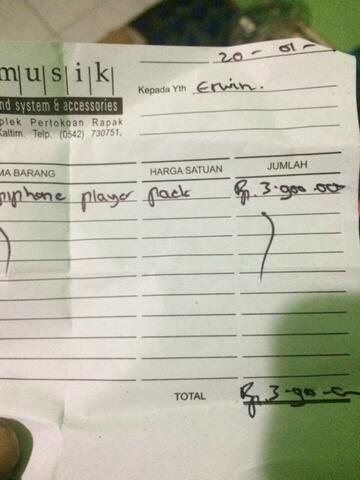 musik
nd system & accessories
plek Pertokoan Rapak
Kaltim. Telp. (0542) 730751,
20 - 01 -
Kepada Yth Erwin.
MA BARANG HARGA SATUAN JUMLAH
piphone player pack Rp. 3.900.000
TOTAL Rp. 3.900.000